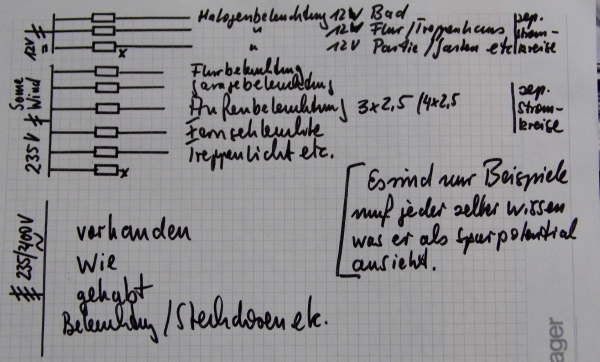 Halogenbeleuchtung 12V Bad
" 12V Flur/Treppenhaus
" 12V Partie/Garten etc
sep.
Strom-
kreise
12V =
Flurbeleuchtung
Garagebeleuchtung
Außenbeleuchtung 3x2,5/4x2,5
Fernsehleuchte
Treppenlicht etc.
sep.
Strom-
kreise
235V
Sonne
Wind
x
x
Es sind nur Beispiele
muß jeder selber wissen
was er als sparpotential
ansieht.
235/400V
~
vorhanden
Wie
gehabt
Beleuchtung/Steckdosen etc.
ager